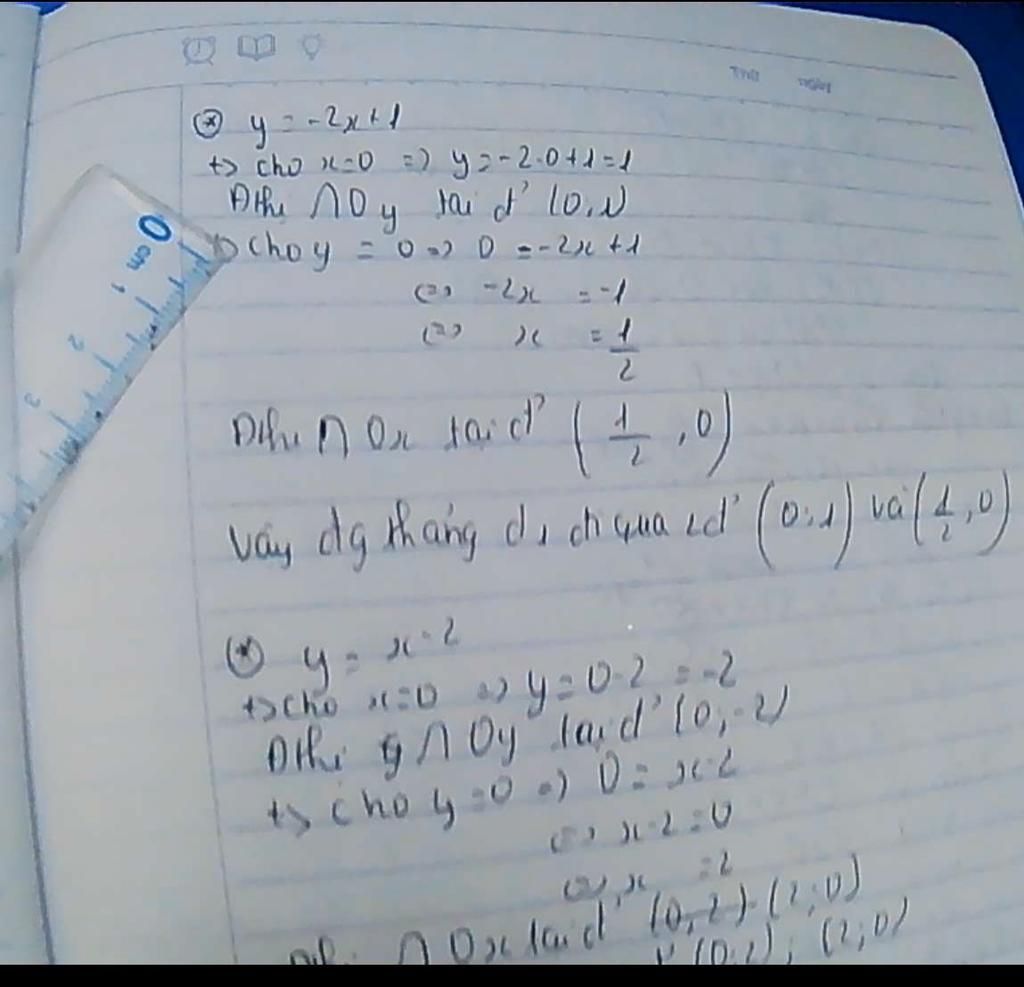 Thứ Ngày
⊛ y = -2x+1
+> cho x=0 => y = -2.0+1=1
Đthị ∩ Oy tại đ' (0,1)
+> cho y = 0 => 0 = -2x+1
<=> -2x = -1
<=> x = 1/2
Đthị ∩ Ox tại đ' (1/2, 0)
Vậy đg thẳng d1 đi qua 2đ' (0;1) và (1/2, 0)
⊛ y = x-2
+> cho x=0 => y = 0-2 = -2
Đthị ∩ Oy tại đ' (0;-2)
+> cho y=0 => 0 = x-2
<=> x-2=0
<=> x = 2
∩ Ox tại đ' (2;0)
(2;0)
0
cm
1
2
3